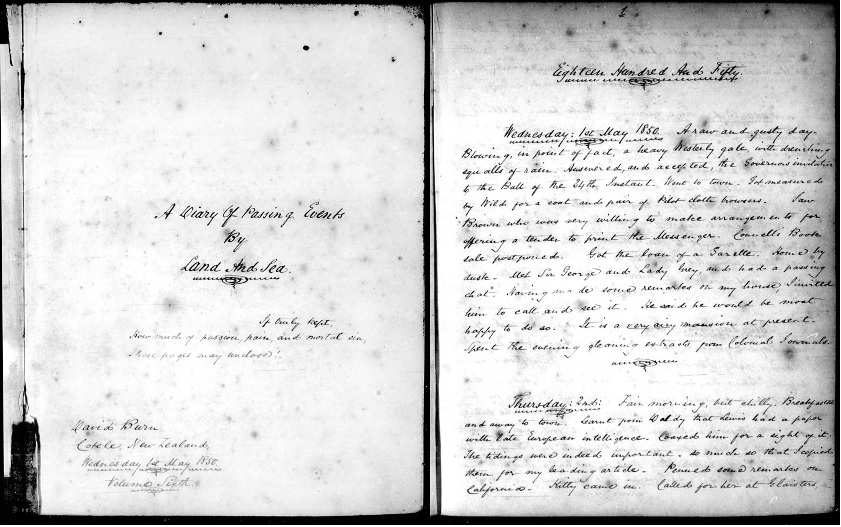 A Diary Of Passing Events
By
Land And Sea.
If truly kept,
How much of passion, pain, and mortal sin,
These pages may unclose!
David Burn
New Zealand,
Wednesday 1st May 1850.
Volume Sixth.
1
Eighteen Hundred And Fifty.
Wednesday: 1st May 1850. A raw and gusty day.
Blowing, in point of fact, a heavy Westerly gale, with drenching
squalls of rain. Answered, and accepted, the Governors invitation
to the Ball of the 24th Instant. Went to town. Got measured
by Wild for a coat and pair of Pilot cloth trowsers. Saw
Brown who was very willing to make arrangements for
offering a tender to print the Messenger. Connells Book
sale postponed. Got the loan of a Gazette. Home by
dusk. Met Sir George and Lady Grey, and had a passing
chat. Having made some remarks on my house, I invited
him to call and see it. He said he would be most
happy to do so. It is a very airy mansion at present.
Spent the evening gleaning extracts from Colonial Journals.
Thursday: 2nd: Fair morning, but chilly. Breakfasted
and away to town. Learnt from Waldy that Lewis had a paper
with late European intelligence. Coaxed him for a sight of it.
The tidings were indeed important. So much so that I copied
them for my leading article. Penned some remarks on
California. Kitty came in. Called for her at